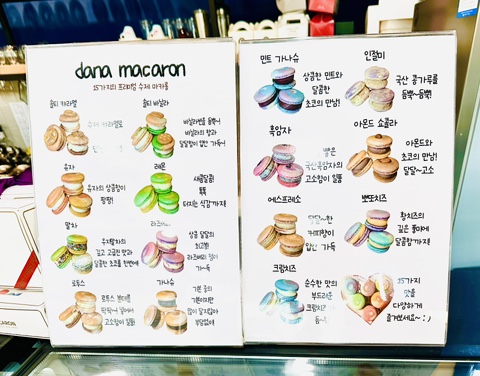 dana macaron
15가지의 프리미엄 수제 마카롱
솔티 카라멜
수제 카라멜로
솔티 바닐라
바닐라빈을 듬뿍~!
바닐라의 향과
달달함이 입안 가득~!
유자
유자의 상큼함이
팡팡!
레몬
새콤달콤!
톡톡
터지는 식감까지!
말차
유기말차의
깊고 고급진 맛과
달콤한 초코를 한번에
라즈베리
상큼 달콤의
최고봉!
라즈베리 잼이
가득
로투스
로투스 분태를
고소함이 일품!
가나슈
기본 중의
기본이지만
많이 달지않아
부담없애
민트 가나슈
상큼한 민트와
달콤한
초코의 만남!
인절미
국산 콩가루를
듬뿍~듬뿍!
흑임자
국산흑임자의
고소함이 일품
아몬드 쇼콜라
아몬드와
초코의 만남!
달달~고소
에스프레소
달달~한
커피향이
입안 가득
뽀또치즈
황치즈의
깊은 풍미에
달콤함까지!
크림치즈
순수한 맛의
부드러운
크림치즈
듬뿍
15가지
맛을
다양하게
즐겨보세요~ : )